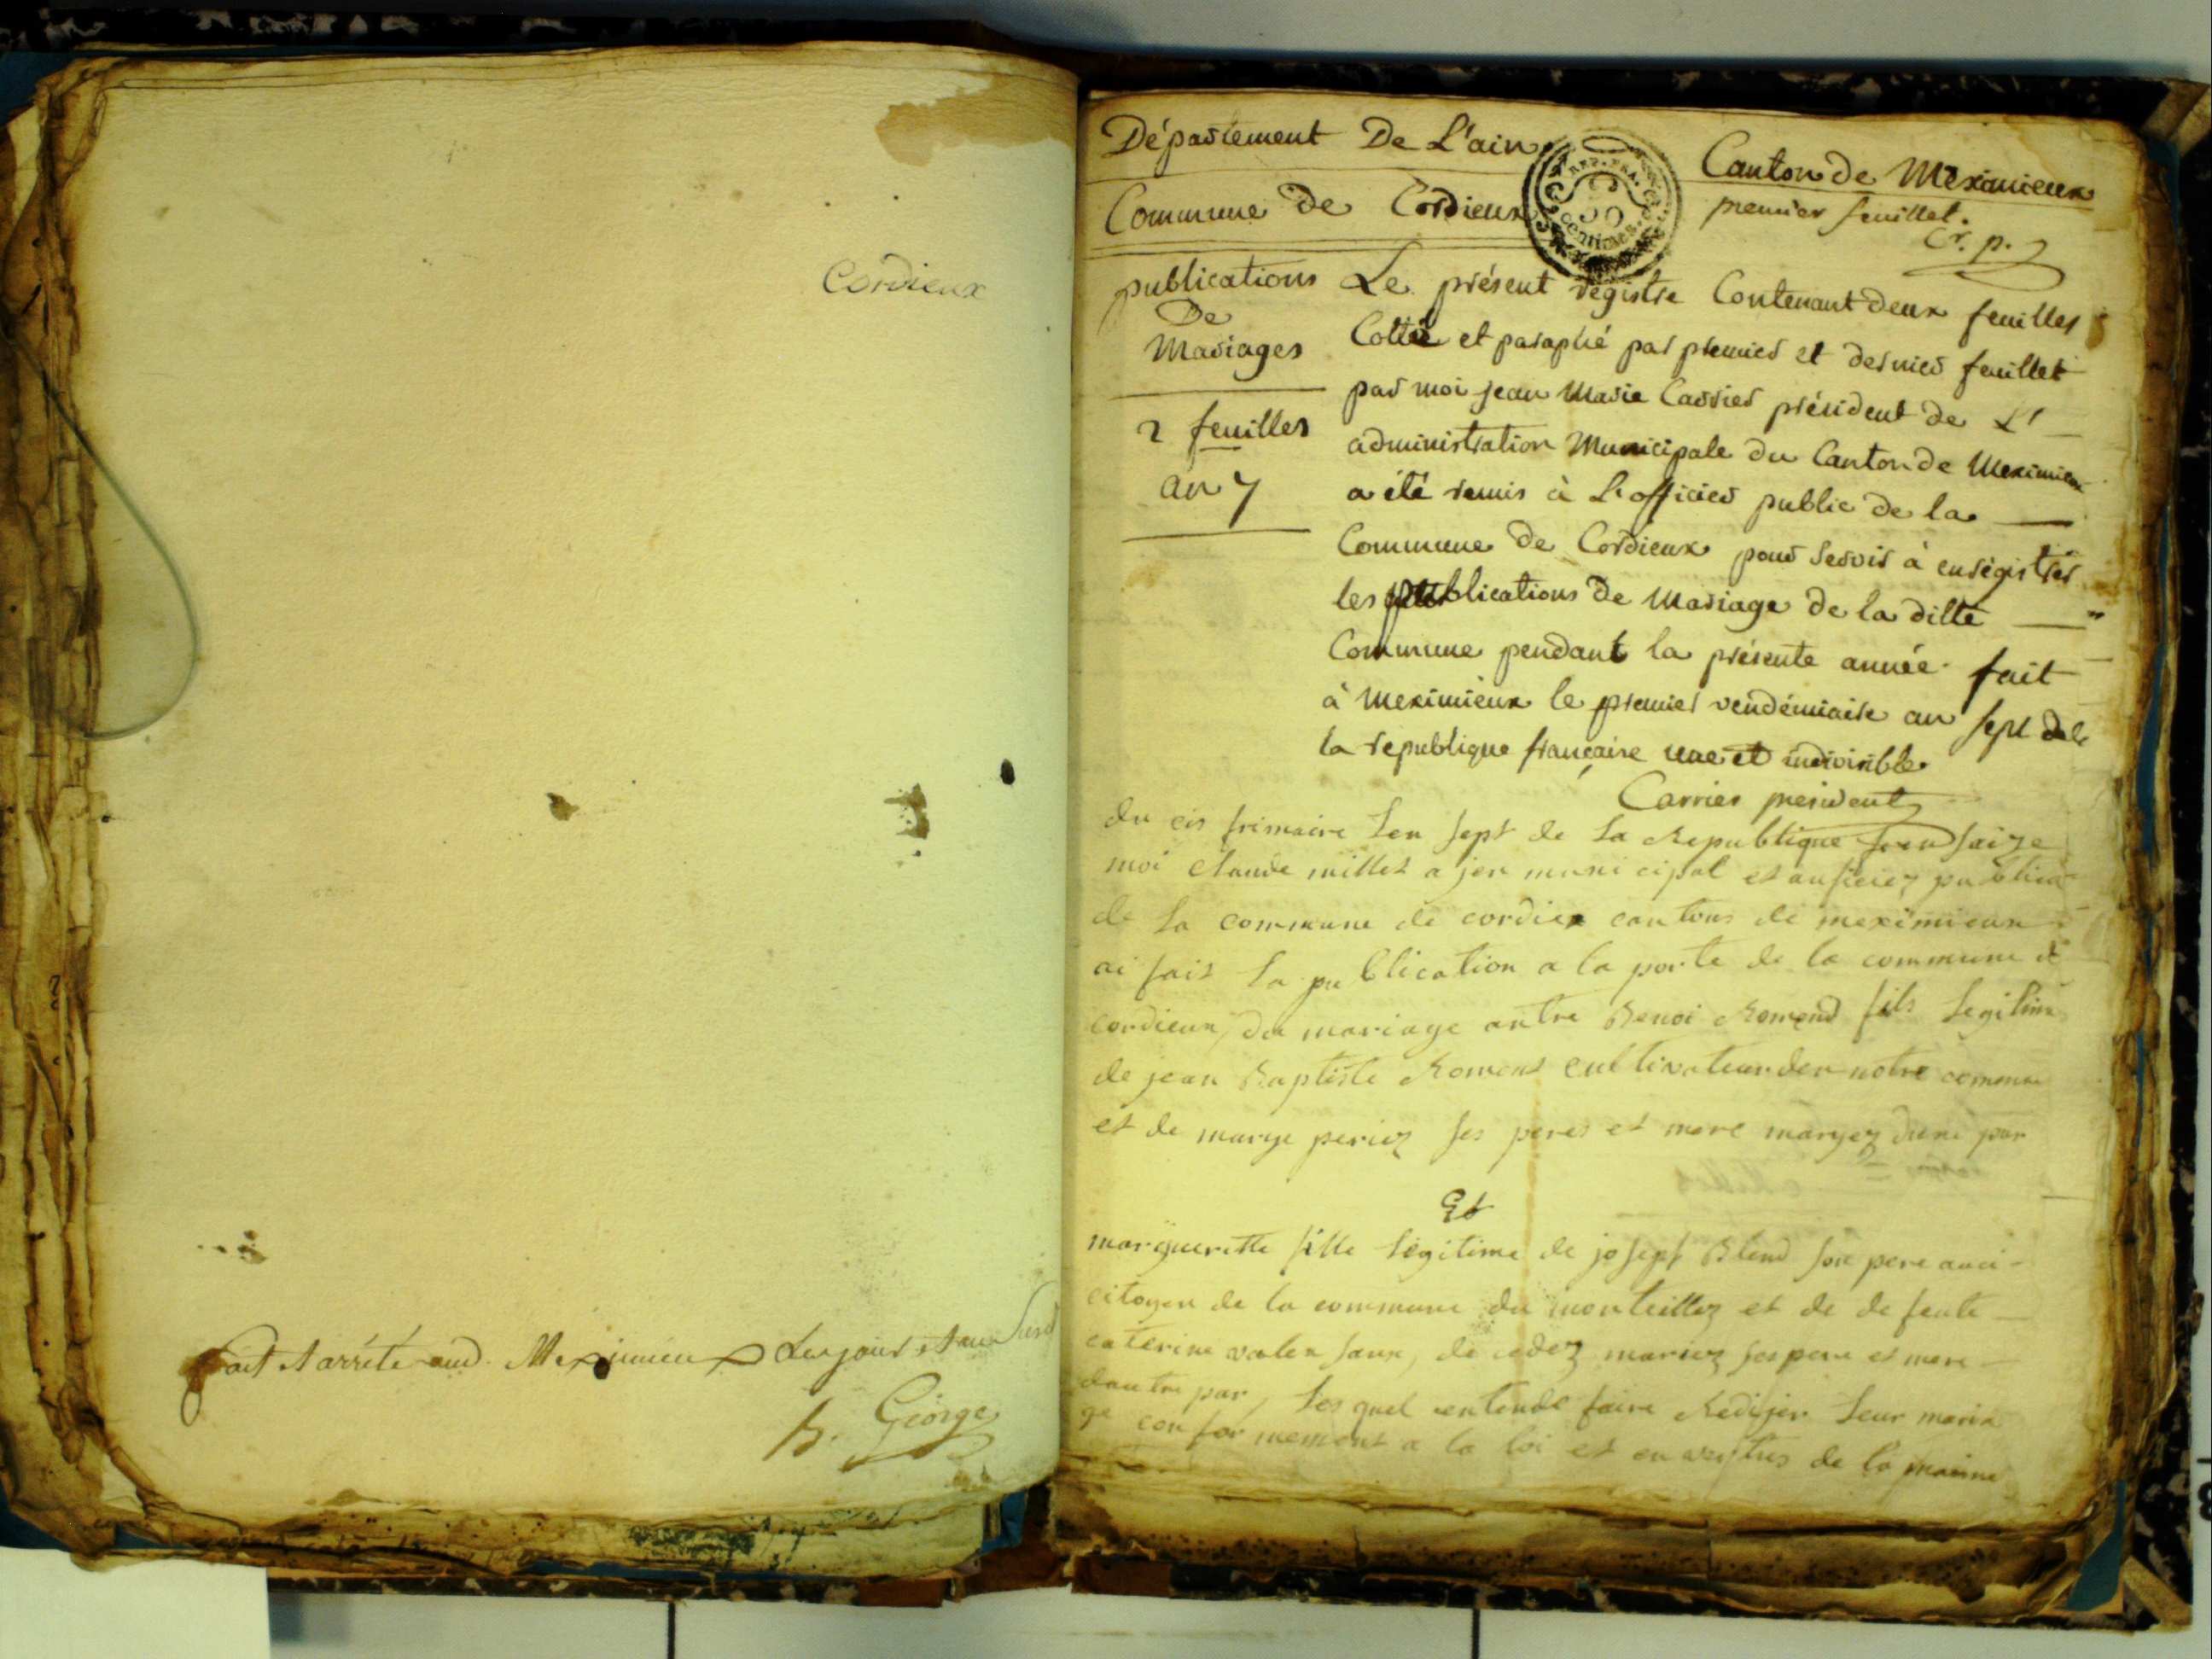 Cordieux
fait et arrêté aud. Meximieux Les jour et an Susd
B. George
Département De L'ain
Canton de Meximieux
Commune De Cordieux
premier feuillet.
Cr. p.
REP. FRA.
50
centimes
publications
De
Mariages
2 feuilles
an 7
Le présent régistre Contenant deux feuilles
Cotté et paraphé par premier et dernier feuillet
par moi jean Marie Carrier président de L'
administration Municipale du Canton de Meximieux
a été remis à L'officier public de la
Commune De Cordieux pour Servir à enrégistrer
les publications De Mariage De la ditte
Commune pendant la présente année fait
à Meximieux le premier vendémiaire an Sept de
la republique française une et indivisible
Carrier president
du cis frimaire Len sept de La Republique fransaize
moi Claude millet ajen municipal et auficiez publica
de La commune de cordiex cantons de meximieux
ai fait La publication a la porte de la commune de
cordieux, du mariage antre Benoi Romand fils Legitime
de jean Baptiste Romend cultivateur den notre commune
et de marye periez ses peres et mere maryez dune par
Et
marguerette fille Legitime de josept Blend son pere auci
citoyen de la commune du monteillez et de defente
caterine valensaux, de cedez mariez ses pere et mere
dautre par, Lesquel entende faire Redijer Leur maria
ge conformement a la loi et en vertus de la